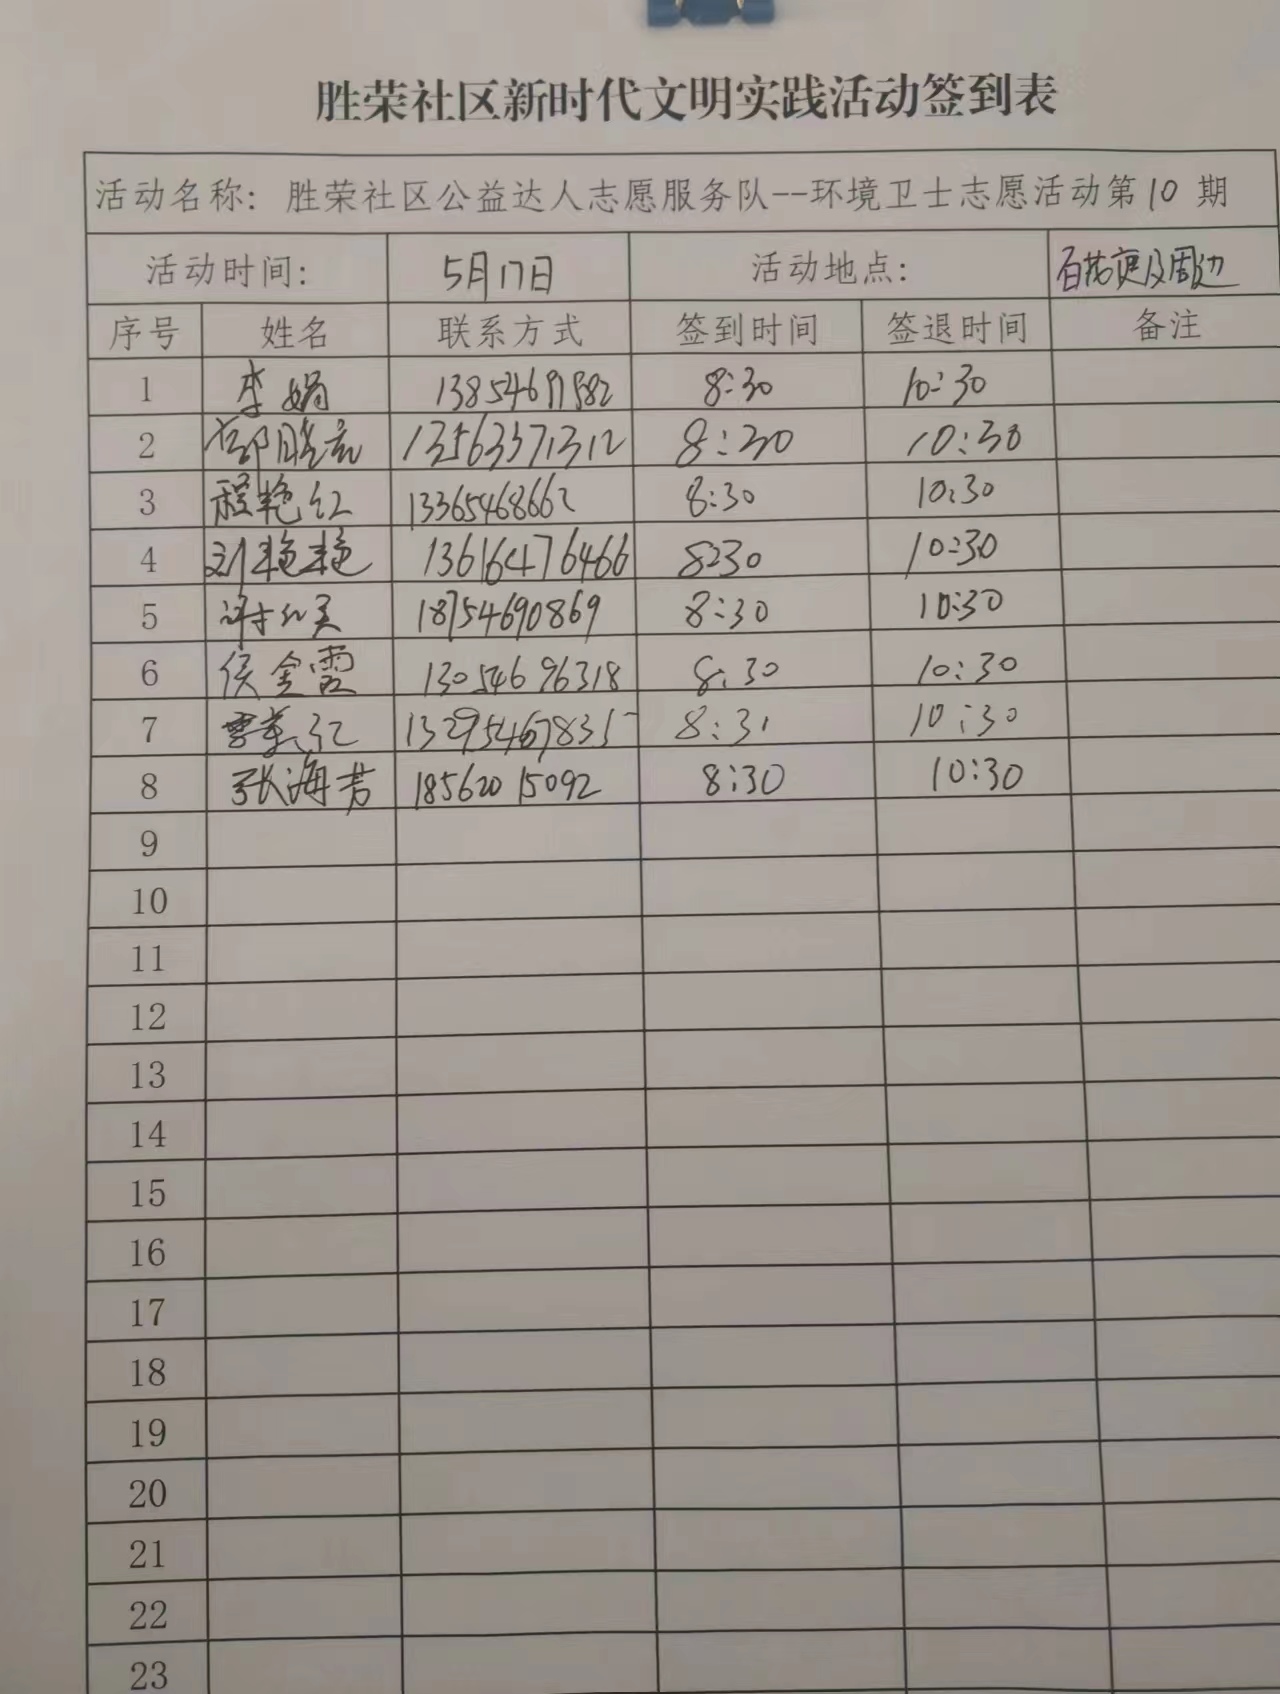 胜荣社区新时代文明实践活动签到表
活动名称：胜荣社区公益达人志愿服务队--环境卫士志愿活动第10期
活动时间： 5月17日 活动地点： 百花庭及周边
序号 姓名 联系方式 签到时间 签退时间 备注
1 李娟 8:30 10:30
2 13563371312 8:30 10:30
3 程艳红 13365468662 8:30 10:30
4 刘艳艳 13616476466 8:30 10:30
5 许红美 18754690869 8:30 10:30
6 侯金霞 13054696318 8:30 10:30
7 8:31 10:30
8 张海芳 18562015092 8:30 10:30
9
10
11
12
13
14
15
16
17
18
19
20
21
22
23